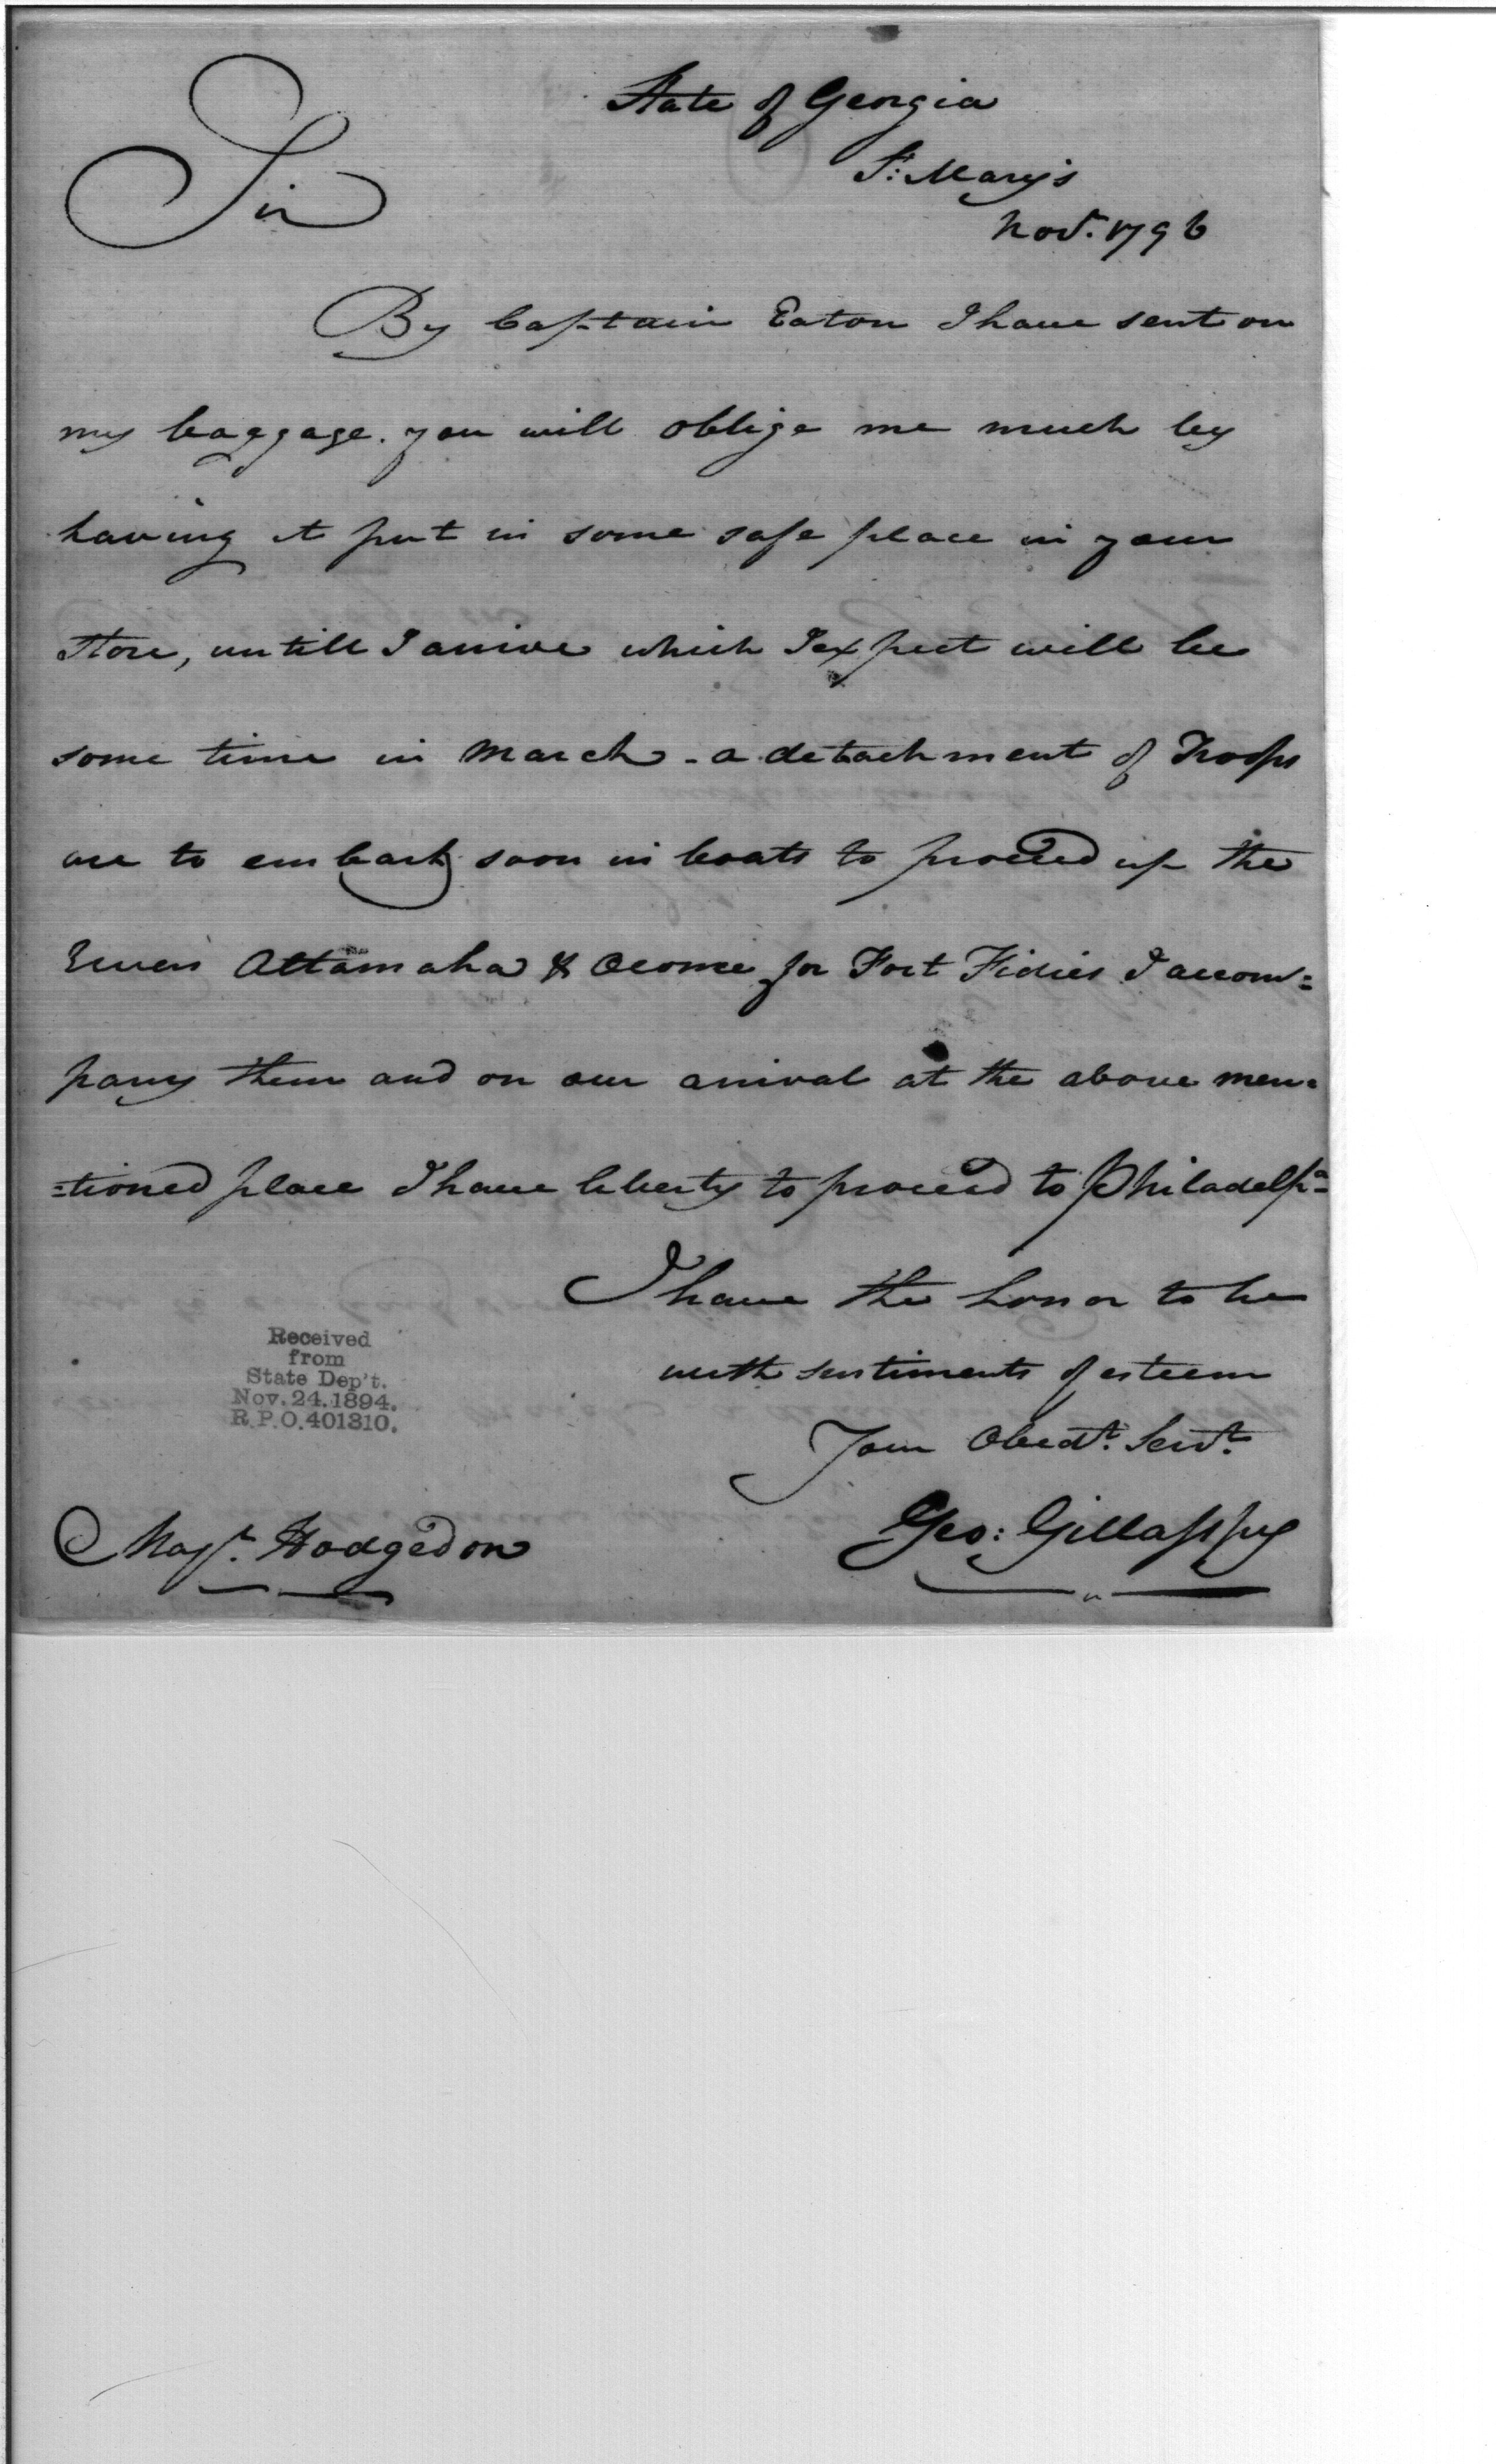 State of Georgia
St: Mary's
Novr. 1796
Sir
By Captain Eaton I have sent on
my baggage. you will oblige me much by
having it put in some safe place in your
Store, untill I arrive which I expect will be
some time in March - a detachment of Troops
are to embark soon in boats to proceed up the
Rivers Altamaha & Oconee for Fort Fidius I accom=
pany them and on our arival at the above men=
=tioned place I have liberty to proceed to Philadelpa
I have the honor to be
with sentiments of esteem
Your Obedt. Servt.
Geo: Gillaspy
Majr. Hodgedon
Received
from
State Dep't.
Nov. 24. 1894.
R.P.O. 401310.